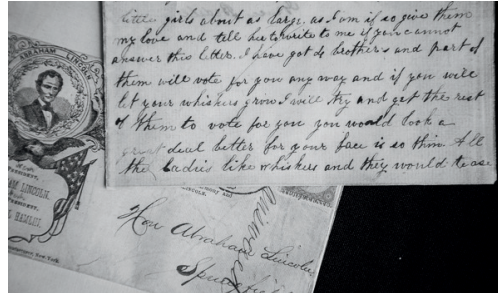 little girls about as large as I am if so give them
my love and tell her to write to me if you cannot
answer this letter. I have got 4 brothers and part of
them will vote for you any way and if you will
let your whiskers grow I will try and get the rest
of them to vote for you you would look a
great deal better for your face is so thin. All
the ladies like whiskers and they would tease
ABRAHAM LINCOLN
PRESIDENT,
HAM LINCOLN,
HAMLIN.
New York
Hon Abraham Lincoln
Springfield